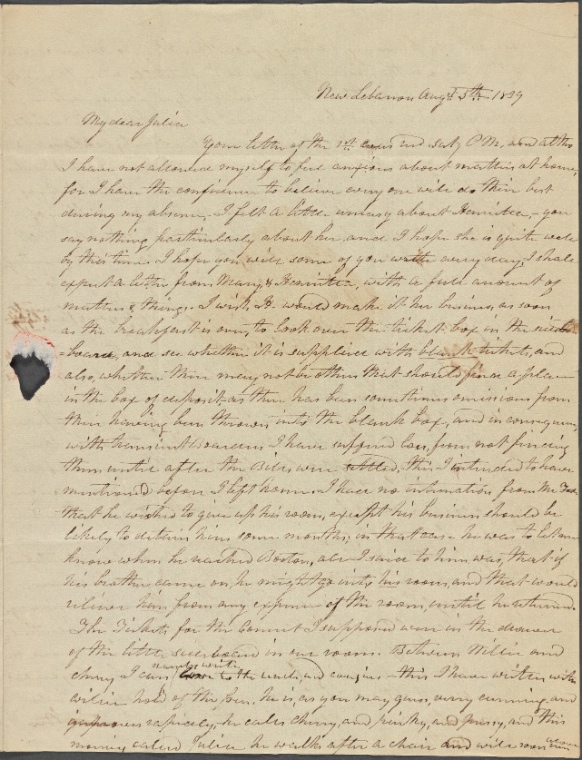 New Lebanon Augt 5th 1839
My dear Julia
Your letter of the 1st was recd Saty P.M. and at the
I have not allowed myself to feel anxious about matters at home,
for I have the confidence to believe every one will do their best
during my absence. I felt a little uneasy about Henrietta, - you
say nothing particularly about her, and I hope she is quite well
by this time. I hope you will some of you write every day, I shall
expect a letter from Mary & Henrietta, with a full amount of
matters & things. I wish H. would make it her business, as soon
as the breakfast is over, to look over the ticket box in the side
board, and see whether it is supplied with blank tickets, and
also, whether there may not be others that should find a place
in the box of deposit as there has been sometimes omissions from
their having been thrown into the blank box, and in consequence
with transient boarders I have suffered loss, from not finding
them until after the Bills were settled, this I intended to have
mentioned before I left home. I have no intimation from Mr
that he wished to give up his room, except his business should be
likely to detain him some months, in that case he was to let me
know when he reached Boston, all I said to him was, that if
his brother came on, he might go into his room, and that would
relieve him from any expense of the room, until he returned.
The Tickets for the I supposed were in the drawer
of the little sideboard in our room. Between Willie and
cherry I can, nearly write to the uncle, and cousins - this I have written with
Willie hold of the pen. he is, as you may guess, very cunning, and
improves rapidly, he calls cherry, and pussy, and this
morning called Julia he walks after a chair and will soon